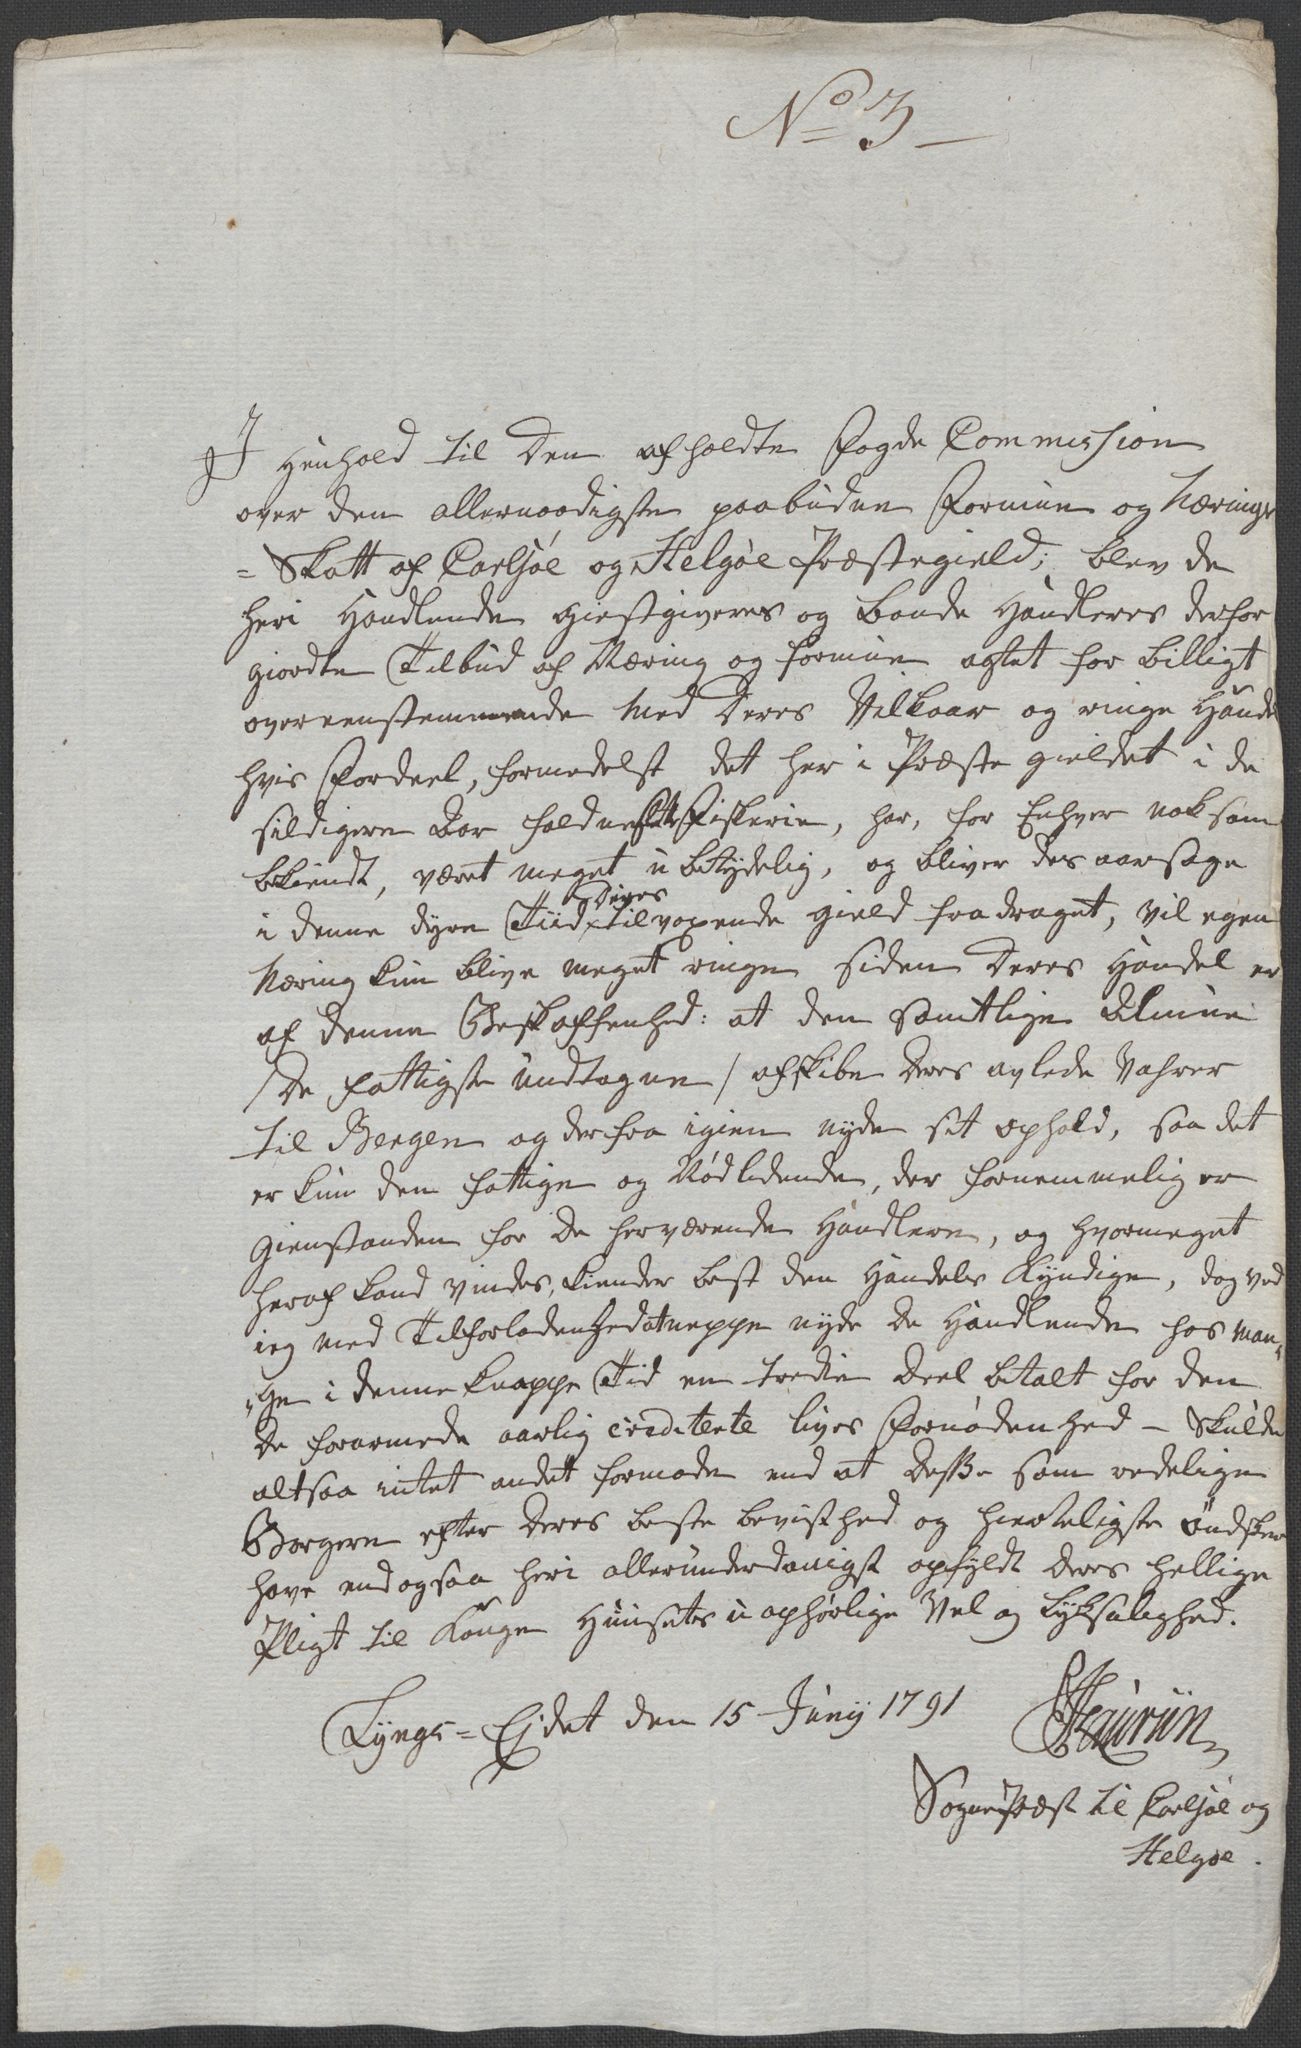 No 3
I Henhold til den afholdte Fogde Commission
over den allernaadigste paabudne Formue og Nærings
= Skatt af Carlsøe og Helgøe Præstegield; blev de
heri Handlende giestgiveres og Bonde Handleres derfor
giordte Tilbud af Næring og formue agtet for billigt
overeenstemmende med deres Vilkaar og ringe Handel
hvis Fordeel, formedelst det her i Præste gieldet i de
sildigere Aar faldne Fiskerie, har, for Enhver noksom
bekiendt, været meget ubetydelig, og bliver des aarsage
i denne dyre Tiid deres tilvoxende gield fradraget, vil egen
Næring kun blive meget ringe siden deres Handel er
af denne Beskaffenhed: at den samtlige Almue
/ de fattigste undtagne / afskibe deres avlede Vahrer
til Bergen og derfra igien nyde sit ophold, saa det
er kun den fattige og Nødlidende, der fornemmelig er
gienstanden for de herværende Handlere, og hvormeget
heraf kand vindes, kiender best den Handels Kyndige, dog ved
ieg med Tilforladenhed at neppe nyde de Handlende hos man„
„ge i denne knappe Tid en tredie Deel betalt for den
de forarmede aarlig crediterte lives Fornødenhed – Skulde
altsaa intet andet formode end at disse som redelige
Borgere efter deres beste bevisthed og hierteligste Ønsker
have endogsaa heri allerunderdanigst opfyldt deres hellige
Pligt til Konge Huusets uophørlige Vel og Lyksalighed.
Lyngs = Ejdet den 15 Junij 1791
Hauruun
SognePræst til Carlsøe og
Helgøe.